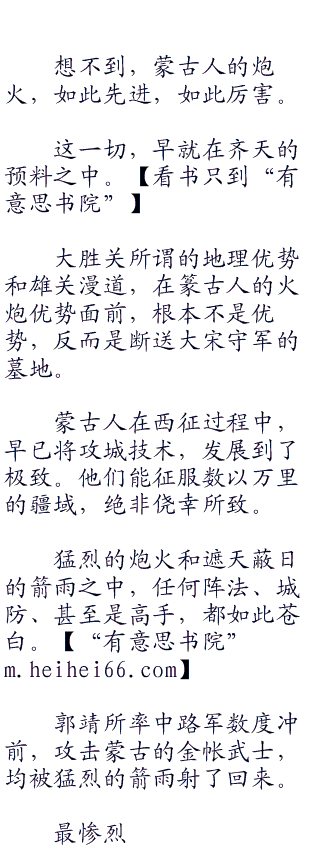 想不到，蒙古人的炮
火，如此先进，如此厉害。
这一切，早就在齐天的
预料之中。【看书只到“有
意思书院”】
大胜关所谓的地理优势
和雄关漫道，在篆古人的火
炮优势面前，根本不是优
势，反而是断送大宋守军的
墓地。
蒙古人在西征过程中，
早已将攻城技术，发展到了
极致。他们能征服数以万里
的疆域，绝非侥幸所致。
猛烈的炮火和遮天蔽日
的箭雨之中，任何阵法、城
防、甚至是高手，都如此苍
白。【“有意思书院”
m.heihei66.com】
郭靖所率中路军数度冲
前，攻击蒙古的金帐武士，
均被猛烈的箭雨射了回来。
最惨烈